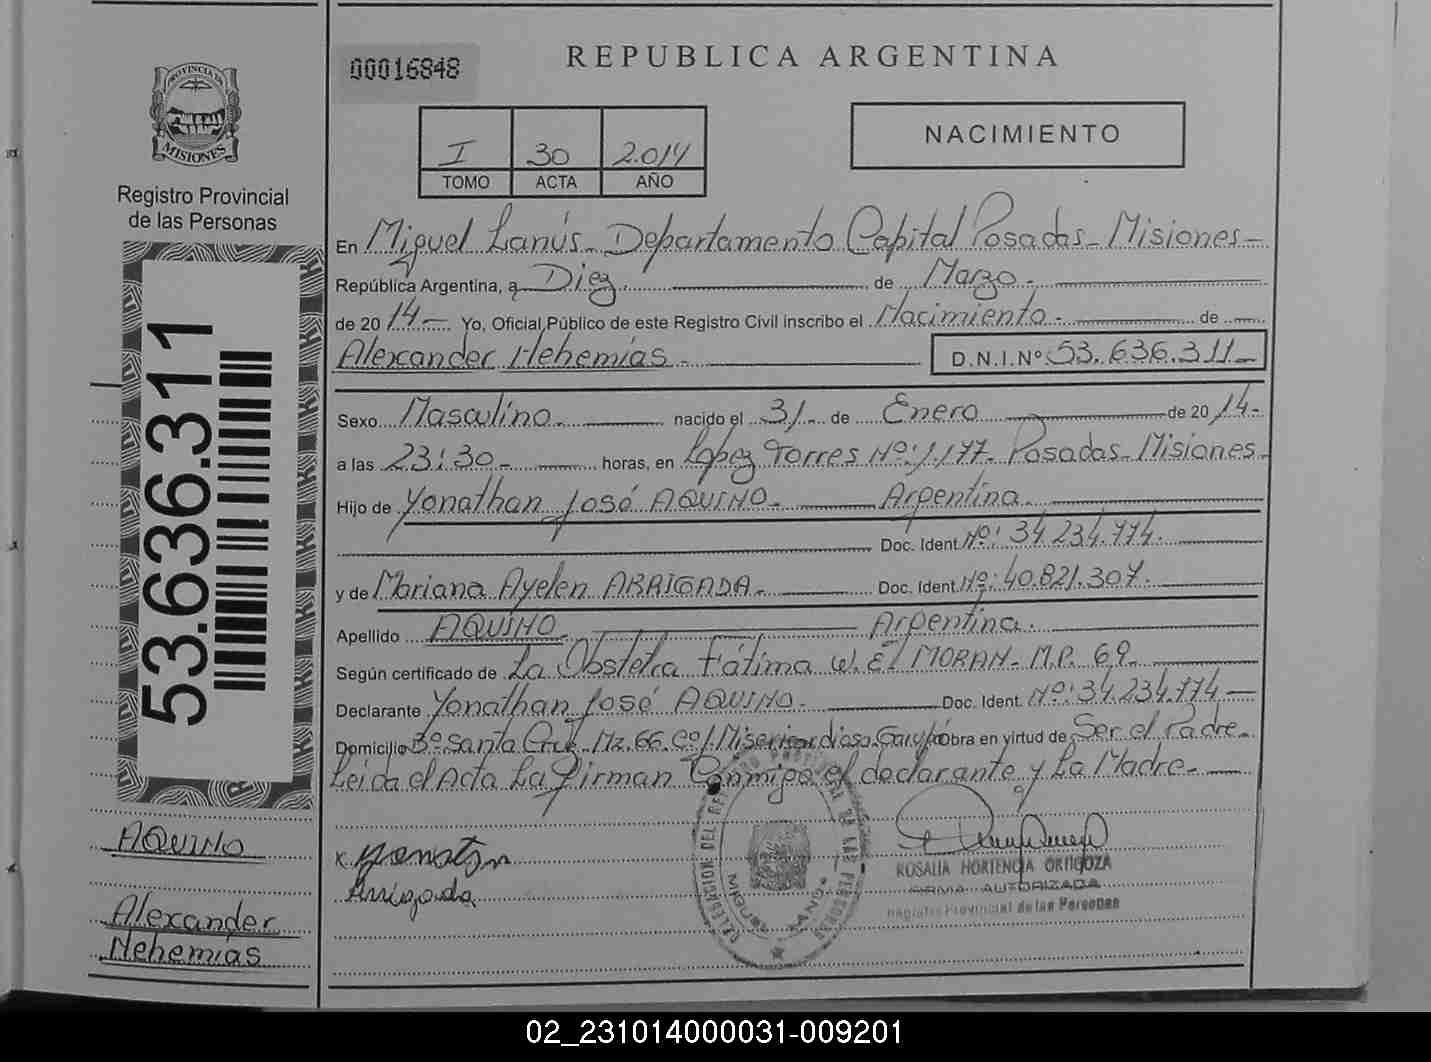 00016848
REPUBLICA ARGENTINA
PROVINCIA DE
MISIONES
Registro Provincial
de las Personas
I 30 2.014
TOMO ACTA AÑO
NACIMIENTO
En Miguel Lanús - Departamento Capital Posadas - Misiones -
República Argentina, a Diez de Marzo -
de 2014 - Yo, Oficial Público de este Registro Civil inscribo el Nacimiento - de
Alexander Nehemías - D.N.I.Nº 53.636.311 -
Sexo Masculino - nacido el 31 - de Enero de 2014 -
a las 23:30 - horas, en López Torres Nº: 1.177 - Posadas - Misiones -
Hijo de Yonathan José AQUINO - Argentina -
Doc. Ident. Nº: 34.234.774 -
y de Mariana Ayelen ARRIGADA - Doc. Ident. Nº: 40.821.307 -
Apellido AQUINO Argentina -
Según certificado de La Obstetra Fátima W. EL MORAN - M.P. 69 -
Declarante Yonathan José AQUINO - Doc. Ident. Nº: 34.234.774 -
Domicilio Bº Santa Cruz Mz. 66 Cº 1 Misericordiosa Garupá Obra en virtud de Ser el Padre -
Leida el Acta La Firman Conmigo el declarante y La Madre -
53.636.311
AQUINO
Alexander
Nehemías
x Yonatan
Arrigada
DELEGACION DEL REGISTRO PROVINCIAL DE LAS PERSONAS
MIGUEL LANUS
ROSALIA HORTENCIA ORTIGOZA
FIRMA AUTORIZADA
Registro Provincial de las Personas
02_231014000031-009201